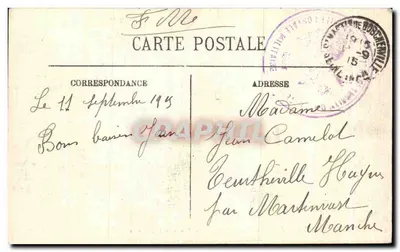 F M
CARTE POSTALE
CORRESPONDANCE
ADRESSE
Le 11 Septembre 1915
Bons baisers Jean
Madame
Jean Camelot
Teurthéville Hague
par Martinvast
Manche
ST MARTIN DE BOSCHERVILLE
15